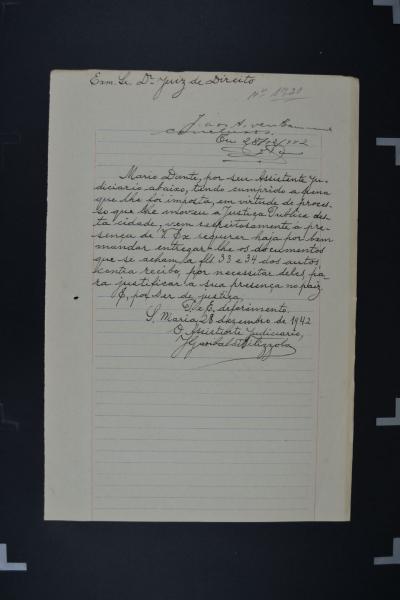 Exm. Sr. Dr. Juiz de Direito
Nº 1920
J. aos A. venham
conclusos.
Em 28/12/942
Mario Dente, por seu Assistente Ju-
diciario abaixo, tendo cumprido a pena
que lhe foi imposta, em virtude de proces-
so que lhe moveu a Justiça Publica des-
ta cidade, vem respeitosamente a pre-
sença de V. Ex requerer haja por bem
mandar entregar-lhe os documentos
que se acham a fls 33 e 34 dos autos
contra recibo, por necessitar deles, pa-
ra justificar a sua presença no paiz.
E, por ser de justiça,
P. e E. deferimento.
S. Maria, 28 dezembro de 1942
O Assistente Judiciario,